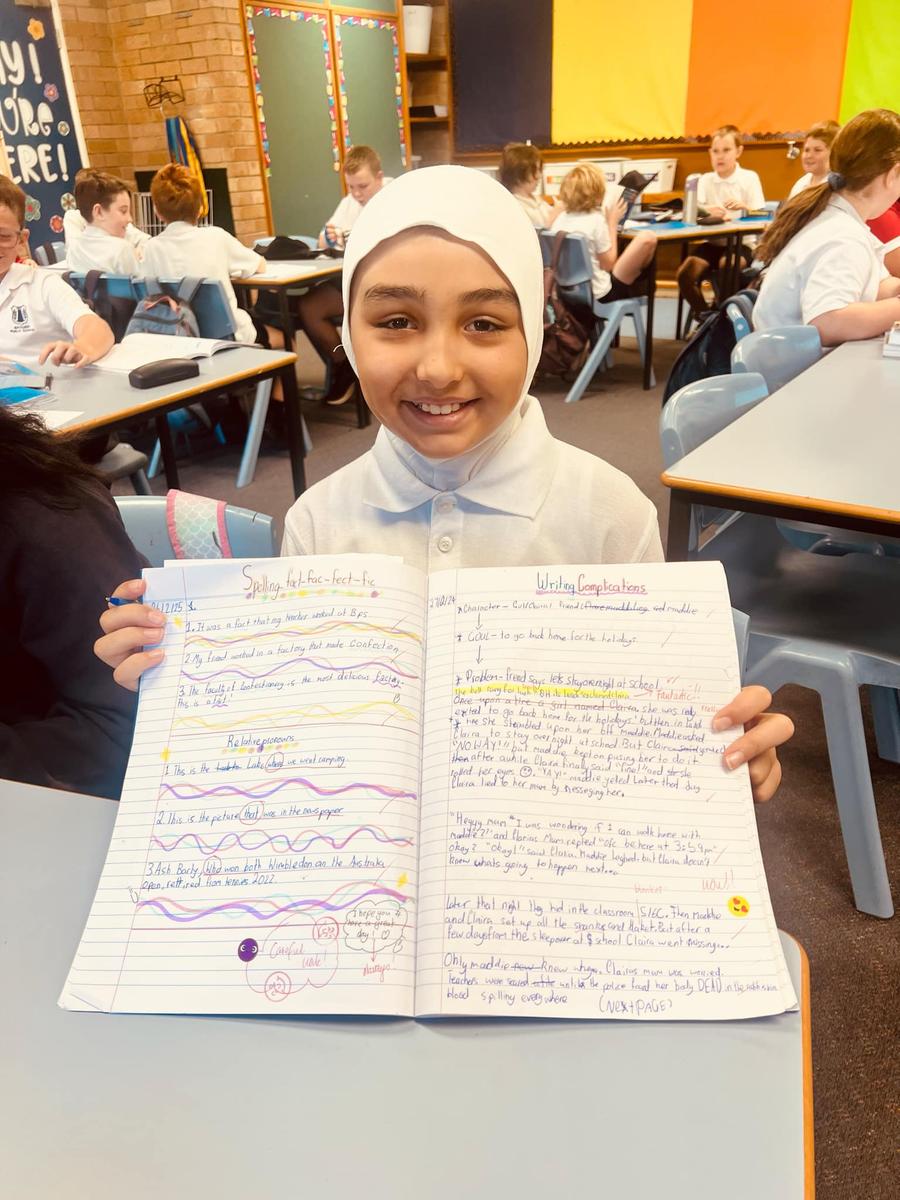 Spelling fact-fac-fect-fic
1. It was a fact that my teacher worked at BPS
2. My friend worked in a factory that made confection
3. The faculty of confectionary is the most delicious factory-
this is a
Relative pronouns
1 This is the Lake where we went camping
2. This is the picture that was in the newspaper
3 Ash Barty, who won both Wimbledon an the Australia
open, retired from tennis 2022.
Careful
work!
I hope you
have a great
day!
Writing Complications
* Character - Girl/Claira! friend maddie
* GOUL - to go back home for the holidays.
* Problem - friend says lets stayovernight at school
The bell rang for lunch "OH its lunch" exclaimed Claira
Fantastic
Once upon a time a girl named Claira, she was realy
exited to go back home for the holidays.' but then in
she stumbled upon her bff Maddie. Maddie asked
Claira to stay overnight at school. But Claira
"NO WAY!" but maddie kept on pusing her to do it.
then after awhile Claira finally said "fine!" and
rolled her eyes "YAY!" maddie yeled Later that day
Claira lied to her mum by messeging her.
"Heyyy mum "I was wondering if I can walk home with
maddie??" and Clarias Mum replied "ofc be here at 3:59pm
okay? "Okay!" said Claira. Maddie laghed. but Claira doesn't
know whats going to happen next...
blankets
wow!
Later that night they hid in the classroom S16C. Then Maddie
and Claira set up all the and But after a
few days from the sleepover at school Claira went missing...
Only maddie knew whye. Clairas mum was worried.
Teachers were scared until the police found her body DEAD in the
blood spilling everywhere (NEXT PAGE)